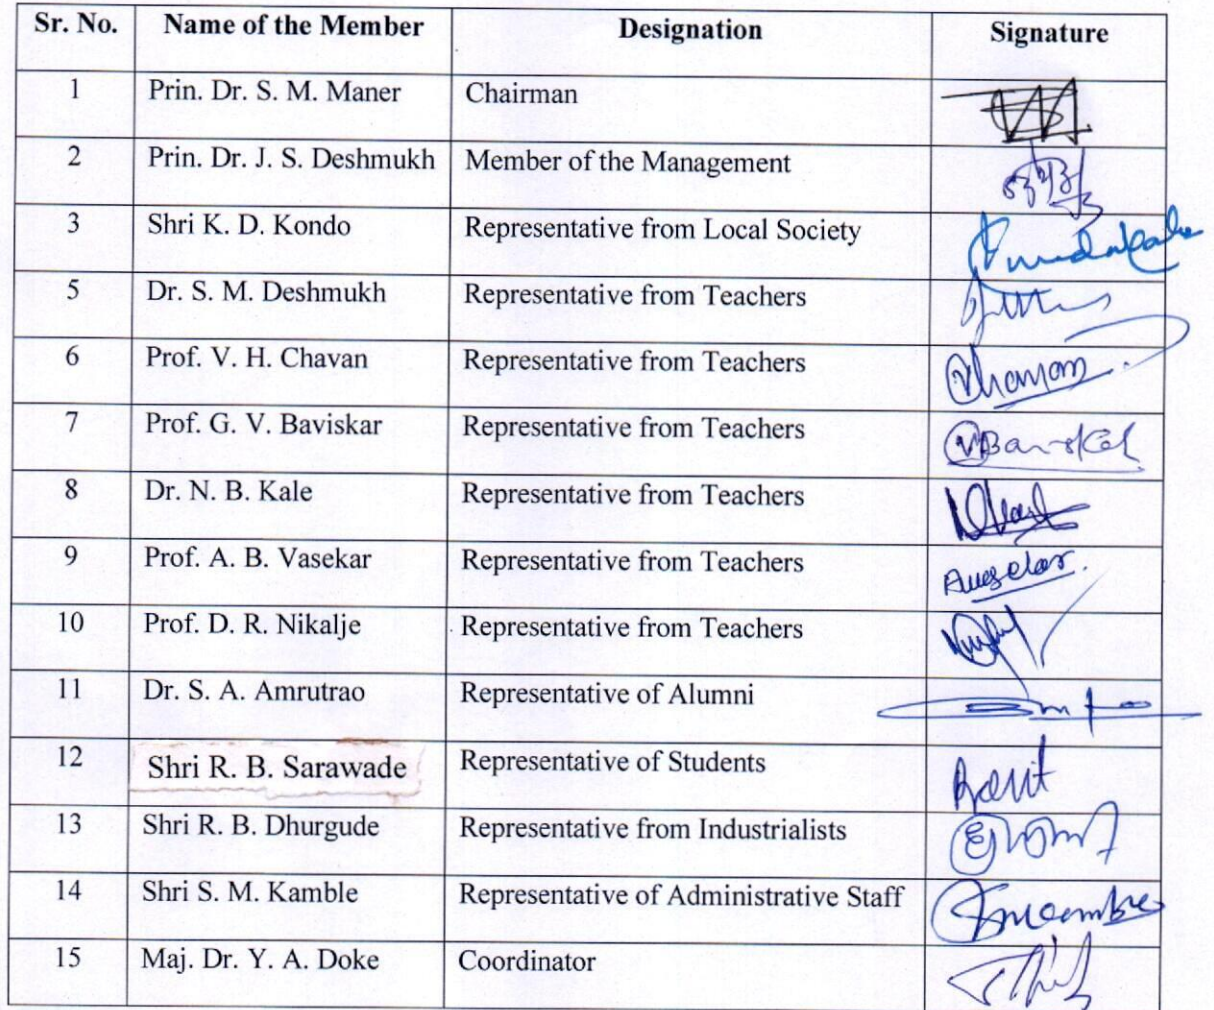 Sr. No. Name of the Member Designation Signature
1 Prin. Dr. S. M. Maner Chairman
2 Prin. Dr. J. S. Deshmukh Member of the Management
3 Shri K. D. Kondo Representative from Local Society
5 Dr. S. M. Deshmukh Representative from Teachers
6 Prof. V. H. Chavan Representative from Teachers
7 Prof. G. V. Baviskar Representative from Teachers
8 Dr. N. B. Kale Representative from Teachers
9 Prof. A. B. Vasekar Representative from Teachers
10 Prof. D. R. Nikalje Representative from Teachers
11 Dr. S. A. Amrutrao Representative of Alumni
12 Shri R. B. Sarawade Representative of Students
13 Shri R. B. Dhurgude Representative from Industrialists
14 Shri S. M. Kamble Representative of Administrative Staff
15 Maj. Dr. Y. A. Doke Coordinator